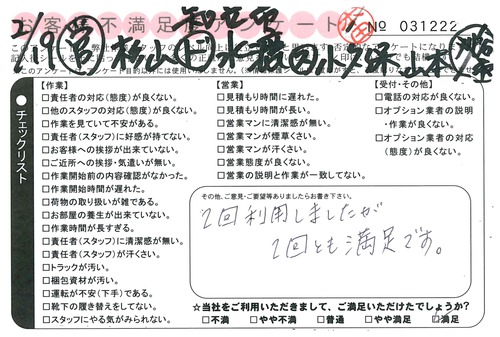 お客様不満足度アンケート
№ 031222
2/19 杉山 水 小久保 山本
チェックリスト
【作業】
□責任者の対応(態度)が良くない。
□他のスタッフの対応(態度)が良くない。
□作業を見ていて不安がある。
□責任者(スタッフ)に好感が持てない。
□お客様への挨拶が出来ていない。
□ご近所への挨拶・気遣いが無い。
□作業開始前の内容確認がなかった。
□作業開始時間が遅れた。
□荷物の取り扱いが雑である。
□お部屋の養生が出来ていない。
□作業時間が長すぎる。
□責任者(スタッフ)に清潔感が無い。
□責任者(スタッフ)が汗くさい。
□トラックが汚い。
□梱包資材が汚い。
□運転が不安(下手)である。
□靴下の履き替えをしてない。
□スタッフにやる気がみられない。
【営業】
□見積もり時間に遅れた。
□見積もり時間が長い。
□営業マンに清潔感が無い。
□営業マンが煙草くさい。
□営業マンが汗くさい。
□営業態度が良くない。
□営業の説明と作業が一致してない。
【受付・その他】
□電話の対応が良くない。
□オプション業者の説明・作業が良くない。
□オプション業者の対応(態度)が良くない。
その他、ご意見・ご要望等ありましたらお書き下さい。
2回利用しましたが
2回とも満足です。
☆当社をご利用いただきまして、ご満足いただけたでしょうか?
□不満 □やや不満 □普通 □やや満足 □満足